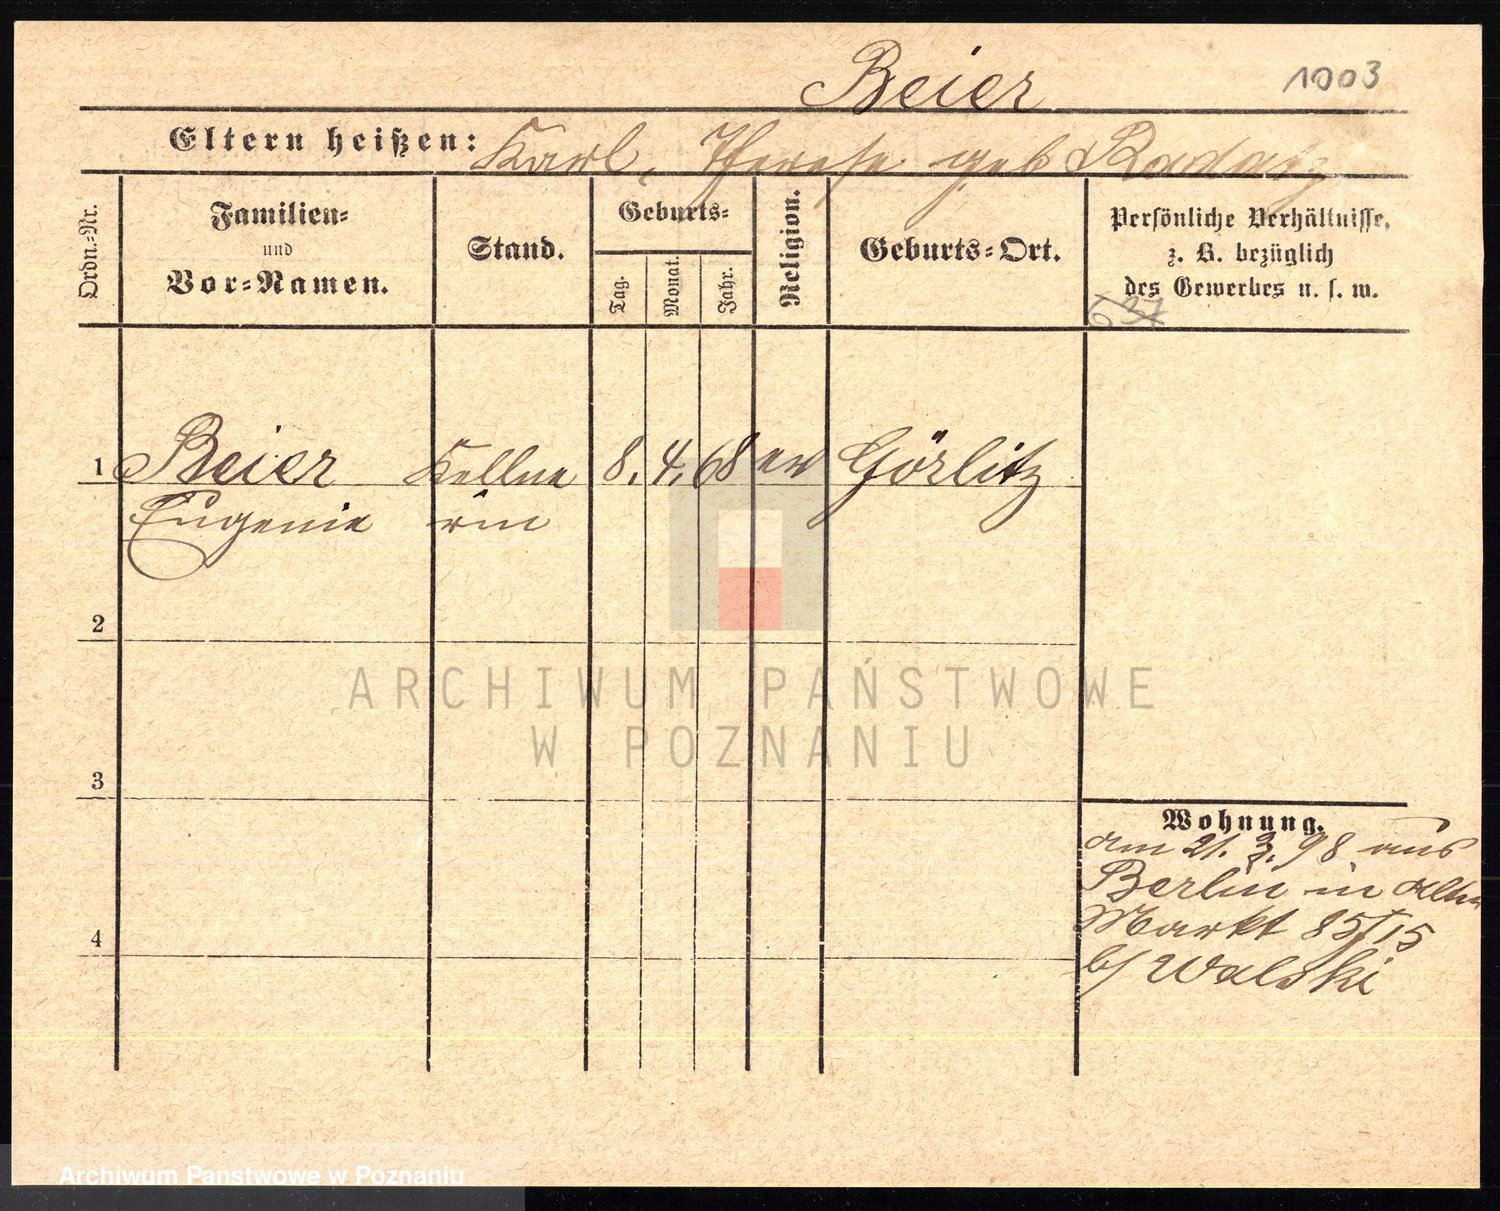 Beier 1003
Eltern heißen: Karl, Therese geb Radatz
Ordn.-Nr.
Familien-
und
Vor-Namen.
Stand.
Geburts-
Tag.
Monat.
Jahr.
Religion.
Geburts-Ort.
Persönliche Verhältnisse,
z. B. bezüglich
des Gewerbes u. s. w.
1 Beier Kellne 8. 4. 68 ev Görlitz
Eugenie rin
2
3
4
Wohnung.
am 21. 98 aus
Berlin in Alten
Markt 85/15
b/ Walski
ARCHIWUM PAŃSTWOWE
W POZNANIU
Archiwum Państwowe w Poznaniu